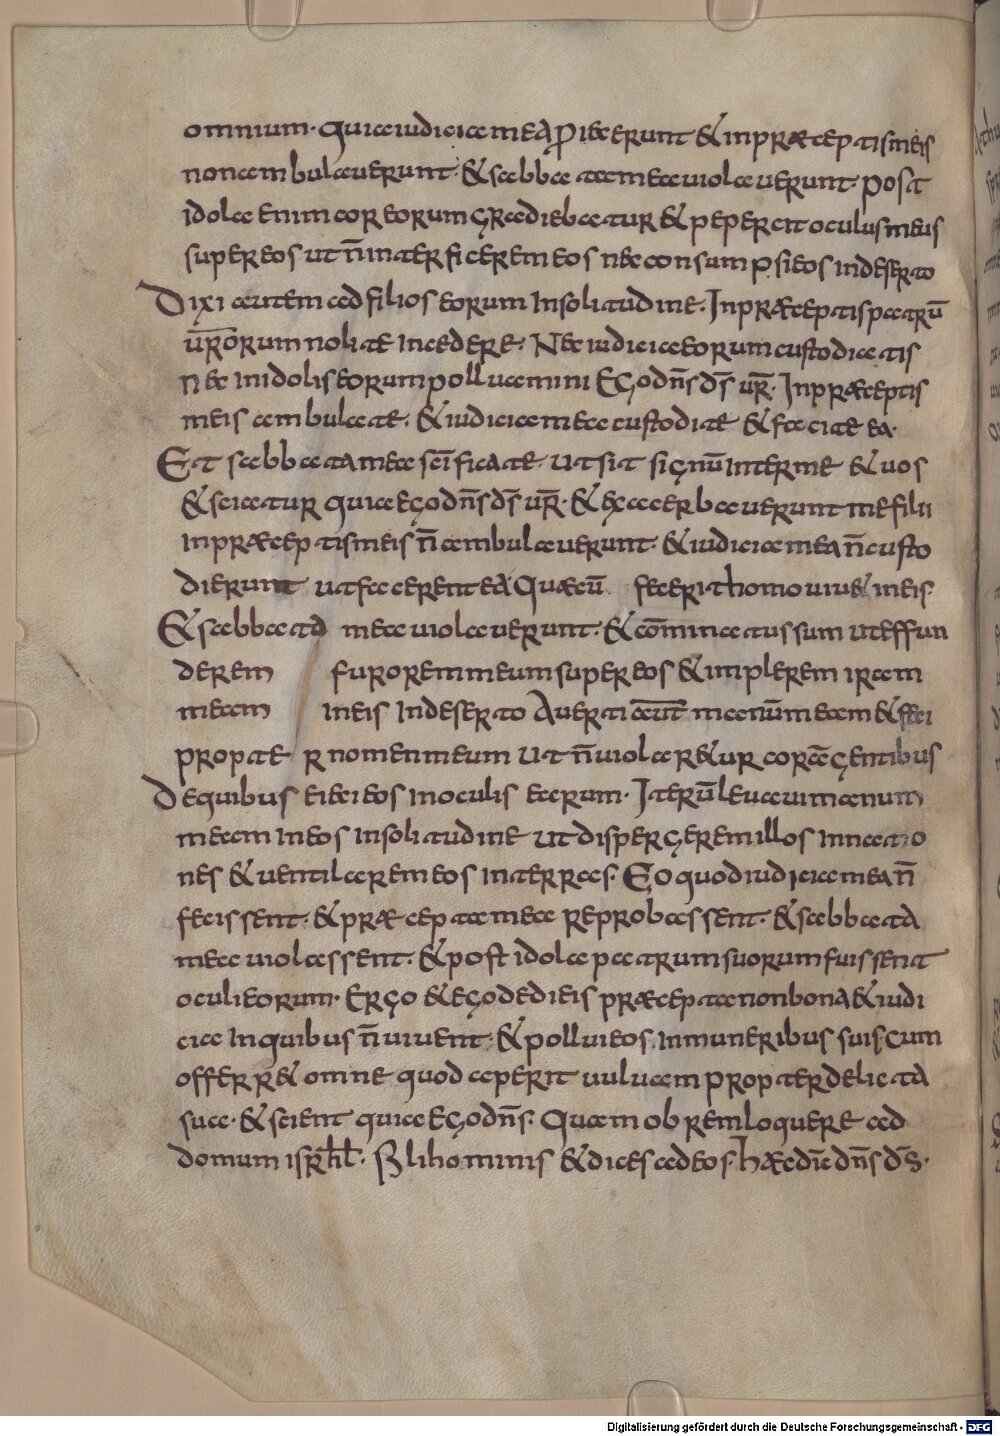 omnium· quia iudicia mea ꝓiecerunt & in præceptis meis
non ambulauerunt· & sabbata mea uiolauerunt· post
idola enim cor eorum gradiebatur & pepercit oculus meus
super eos ut n̄ interficerem eos nec consumpsi eos in deserto
Dixi autem ad filios eorum In solitudine· In præceptis patrū
ūr̄orum nolite incedere· Nec iudicia eorum custodiatis
nec in idolis eorum polluamini Ego dn̄s ds̄ ur̄· In præceptis
meis ambulate· & iudicia mea custodite & facite ea·
Et sabbata mea sc̄ificate· ut sit signū inter me & uos
& sciatur quia ego dn̄s ds̄ ur̄· & exacerbauerunt me filii
in præceptis meis n̄ ambulauerunt· & iudicia mea n̄ custo
dierunt ut facerent ea Quæcū fecerit homo uiu& in eis·
& sabbata mea uiolauerunt· & cōminatus sum ut effun
derem furorem meum super eos & implerem iram
meam in eis in deserto Auerti aūt manū meam & feci
propter nomen meum ut n̄ uiolar&ur corā gentibus
De quibus eieci eos in oculis earum· Iterū leuaui manum
meam in eos in solitudine ut dispergerem illos in natio
nes & uentilarem eos in terras· Eo quod iudicia mea n̄
fecissent· & præcepta mea reprobassent· & sabbata
mea uiolassent· & post idola patrum suorum fuissent
oculi eorum· Ergo & ego dedi eis præcepta non bona & iudi
cia In quibus n̄ uiuent· & pollui eos in muneribus suis· cum
offerr& omne quod aperit uuluam propter delicta
sua· & scient quia ego dn̄s· Quam ob rem loquere ad
domum isrl̄· fili hominis & dices ad eos· hæc dic̄ dn̄s ds̄·
Digitalisierung gefördert durch die Deutsche Forschungsgemeinschaft - DFG